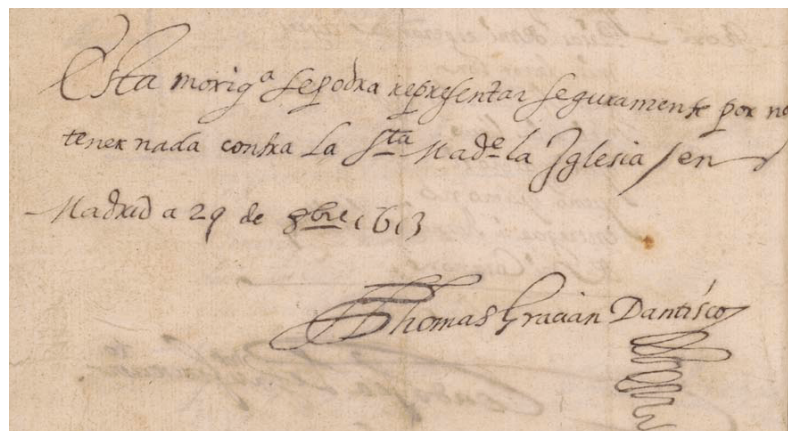 Esta morigª se podra representar seguramente por no
tener nada contra La Sta Made la Iglesia / en
Madrid a 29 de 8bre 1613
Thomas Gracian Dantisco